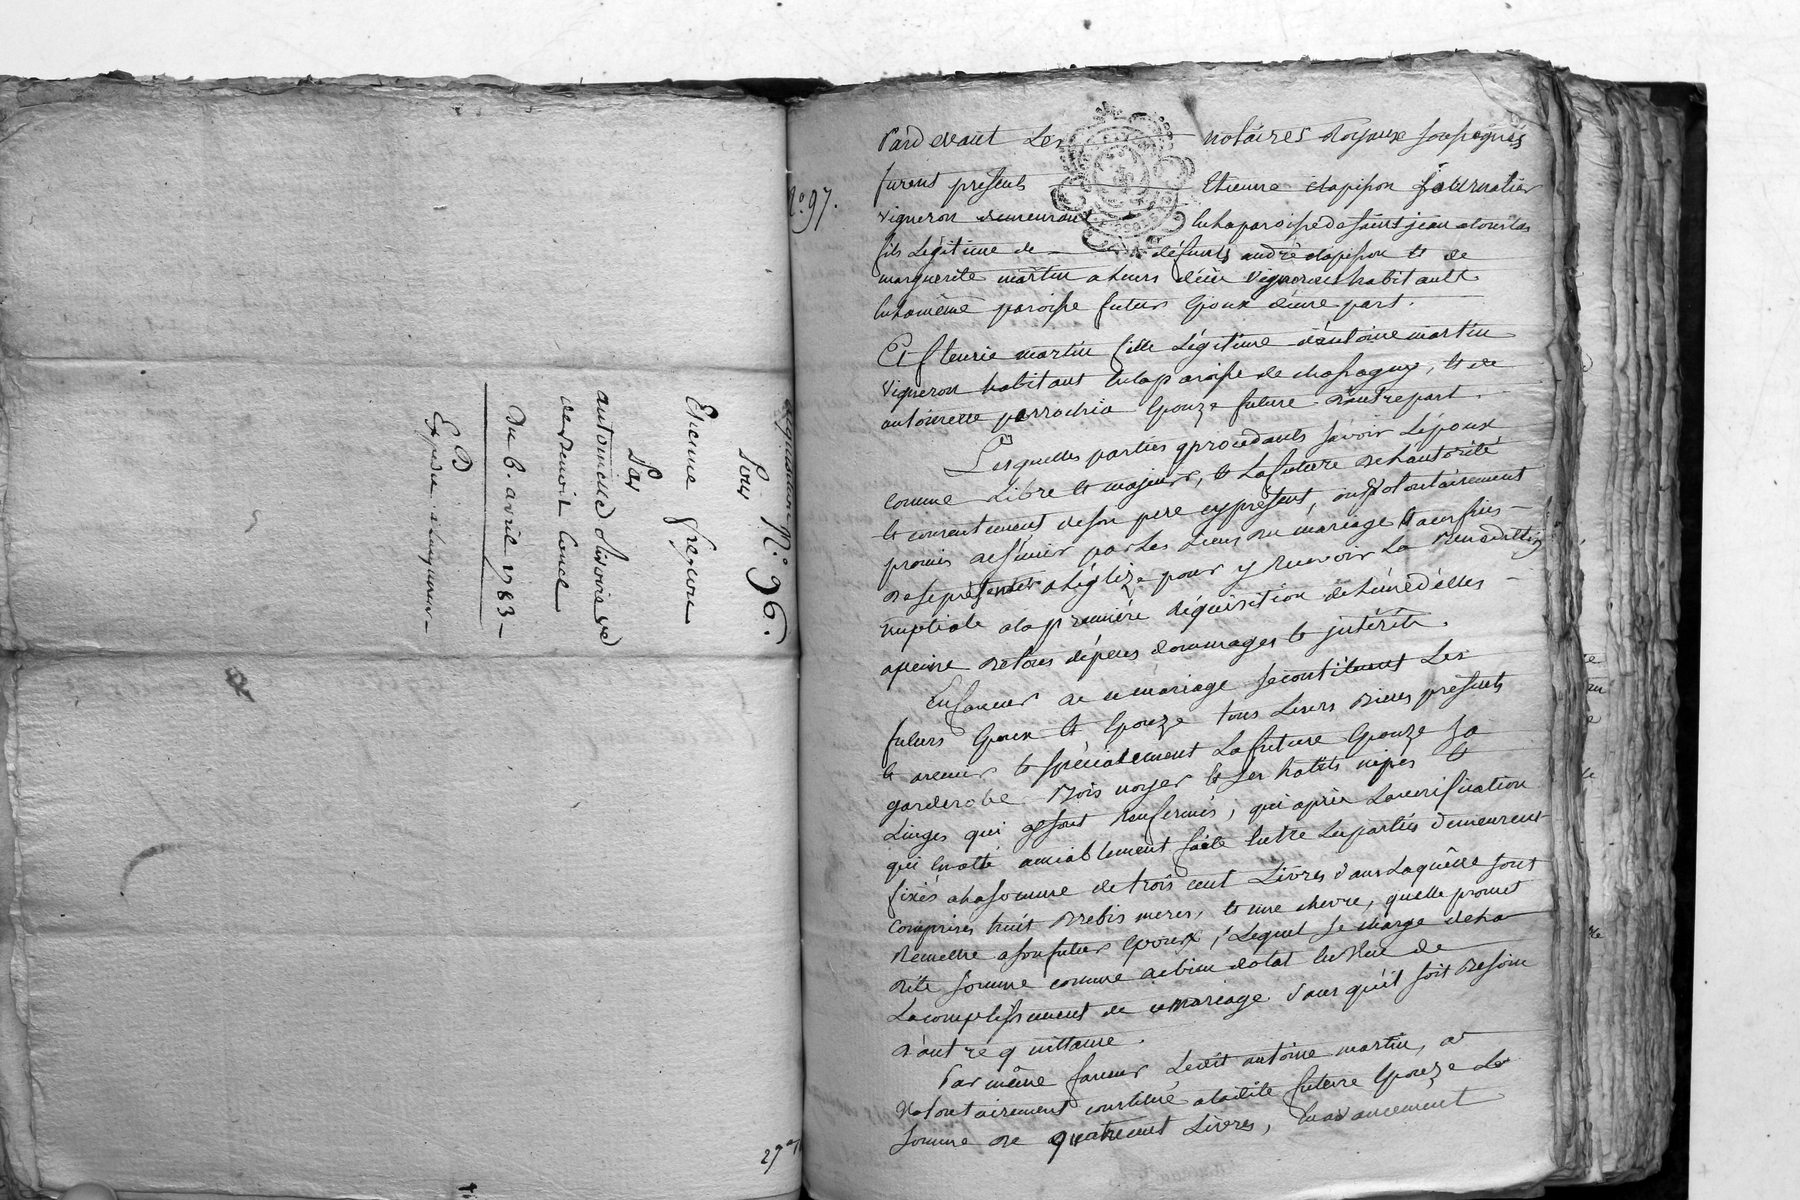 N.° 96.
Pour
Etienne
Par
antoinette
de Benoit
Du 6. avril 1783 –
Expédié
N.° 97.
Pardevant Les notaires Royaux soussignés
furent présents Etienne clapisson journalier
vigneron demeurant en la paroisse de saint jean
fils Légitime de défunts andré clapisson et de
marguerite martin vignerons habitants
en la même paroisse futur Epoux d'une part.
Et fleurie martin fille Légitime d'antoine martin
vigneron habitant en la paroisse de chassagny, et de
antoinette Epouze future d'autre part.
Lesquelles parties procedants savoir L'epoux
comme Libre et majeur, et La future de L'autorité
et consentement de son pere cy présent, ont volontairement
promis de s'unir par les Liens du mariage et aux fins
de se présenter a L'églize pour y recevoir La Benediction
nuptiale a la premiére réquisition de L'une d'elles
a peine de tous dépens dommages et intérêts.
En faveur de ce mariage se constituent Les
futurs Epoux et Epouze tous Leurs Biens présents
et avenir et spécialement La future Epouze sa
garderobe Bois noyer et ses habits nipes et
Linges qui y sont renfermés, qui après La verification
qui en a été amiablement faite entre Les parties demeurent
fixés a la somme de trois cent Livres dans Laquelle sont
comprises huit Brebis meres, et une chevre, quelle promet
Remettre a son futur Epoux, Lequel se charge de La
dite somme comme de bien dotal en vue de
L'accomplissement de ce mariage sans qu'il soit Besoin
d'autre quittance.
Par même faveur Ledit antoine martin, a
volontairement constitué a ladite future Epouze La
somme de quatre cent Livres, en avancement